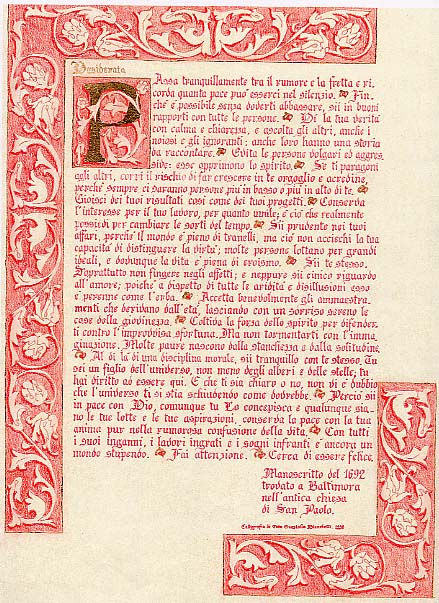 Desiderata
Passa tranquillamente tra il rumore e la fretta e ri-
corda quanta pace può esserci nel silenzio. Fin-
ché è possibile senza doverti abbassare, sii in buoni
rapporti con tutte le persone. Dì la tua verità
con calma e chiarezza, e ascolta gli altri, anche i
noiosi e gli ignoranti; anche loro hanno una storia
da raccontare. Evita le persone volgari ed aggres-
sive; esse opprimono lo spirito. Se ti paragoni
agli altri, corri il rischio di far crescere in te orgoglio e acredine,
perché sempre ci saranno persone più in basso o più in alto di te.
Gioisci dei tuoi risultati così come dei tuoi progetti. Conserva
l'interesse per il tuo lavoro, per quanto umile; è ciò che realmente
possiedi per cambiare le sorti del tempo. Sii prudente nei tuoi
affari, perché il mondo è pieno di tranelli, ma ciò non accechi la tua
capacità di distinguere la virtù; molte persone lottano per grandi
ideali, e dovunque la vita è piena di eroismo. Sii te stesso.
Soprattutto non fingere negli affetti; e neppure sii cinico riguardo
all'amore; poiché a dispetto di tutte le aridità e disillusioni esso
è perenne come l'erba. Accetta benevolmente gli ammaestra-
menti che derivano dall'età, lasciando con un sorriso sereno le
cose della giovinezza. Coltiva la forza dello spirito per difender-
ti contro l'improvvisa sfortuna. Ma non tormentarti con l'imma-
ginazione. Molte paure nascono dalla stanchezza e dalla solitudine.
Al di là di una disciplina morale, sii tranquillo con te stesso. Tu
sei un figlio dell'universo, non meno degli alberi e delle stelle; tu
hai diritto ad essere qui. E che ti sia chiaro o no, non vi è dubbio
che l'universo ti si stia schiudendo come dovrebbe. Perciò sii
in pace con Dio, comunque tu Lo concepisca e qualunque sia-
no le tue lotte e le tue aspirazioni, conserva la pace con la tua
anima pur nella rumorosa confusione della vita. Con tutti
i suoi inganni, i lavori ingrati e i sogni infranti è ancora un
mondo stupendo. Fai attenzione. Cerca di essere felice.
Manoscritto del 1692
trovato a Baltimora
nell'antica chiesa
di San Paolo.